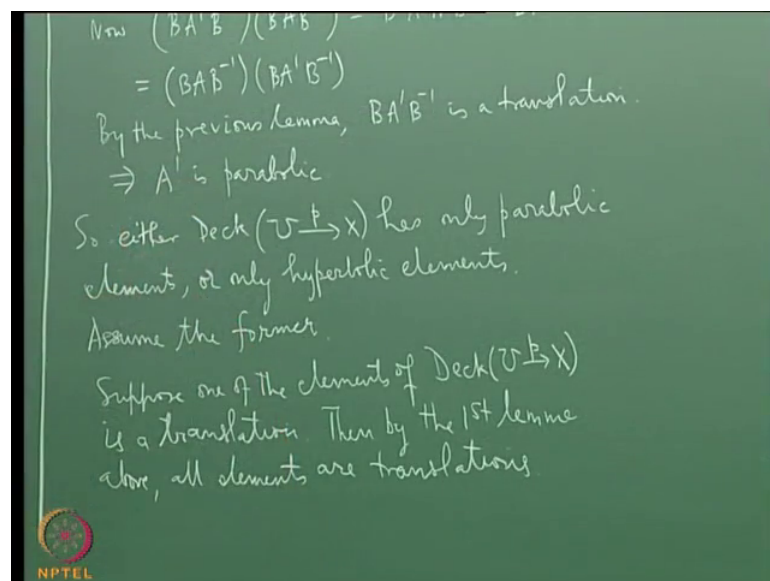 Now (BA'B⁻¹)(BAB⁻¹) =
= (BAB⁻¹)(BA'B⁻¹)
By the previous lemma, BA'B⁻¹ is a translation.
⇒ A' is parabolic
So either Deck(U →p X) has only parabolic
elements, or only hyperbolic elements.
Assume the former.
Suppose one of the elements of Deck(U →p X)
is a translation. Then by the 1st lemma
above, all elements are translations
NPTEL